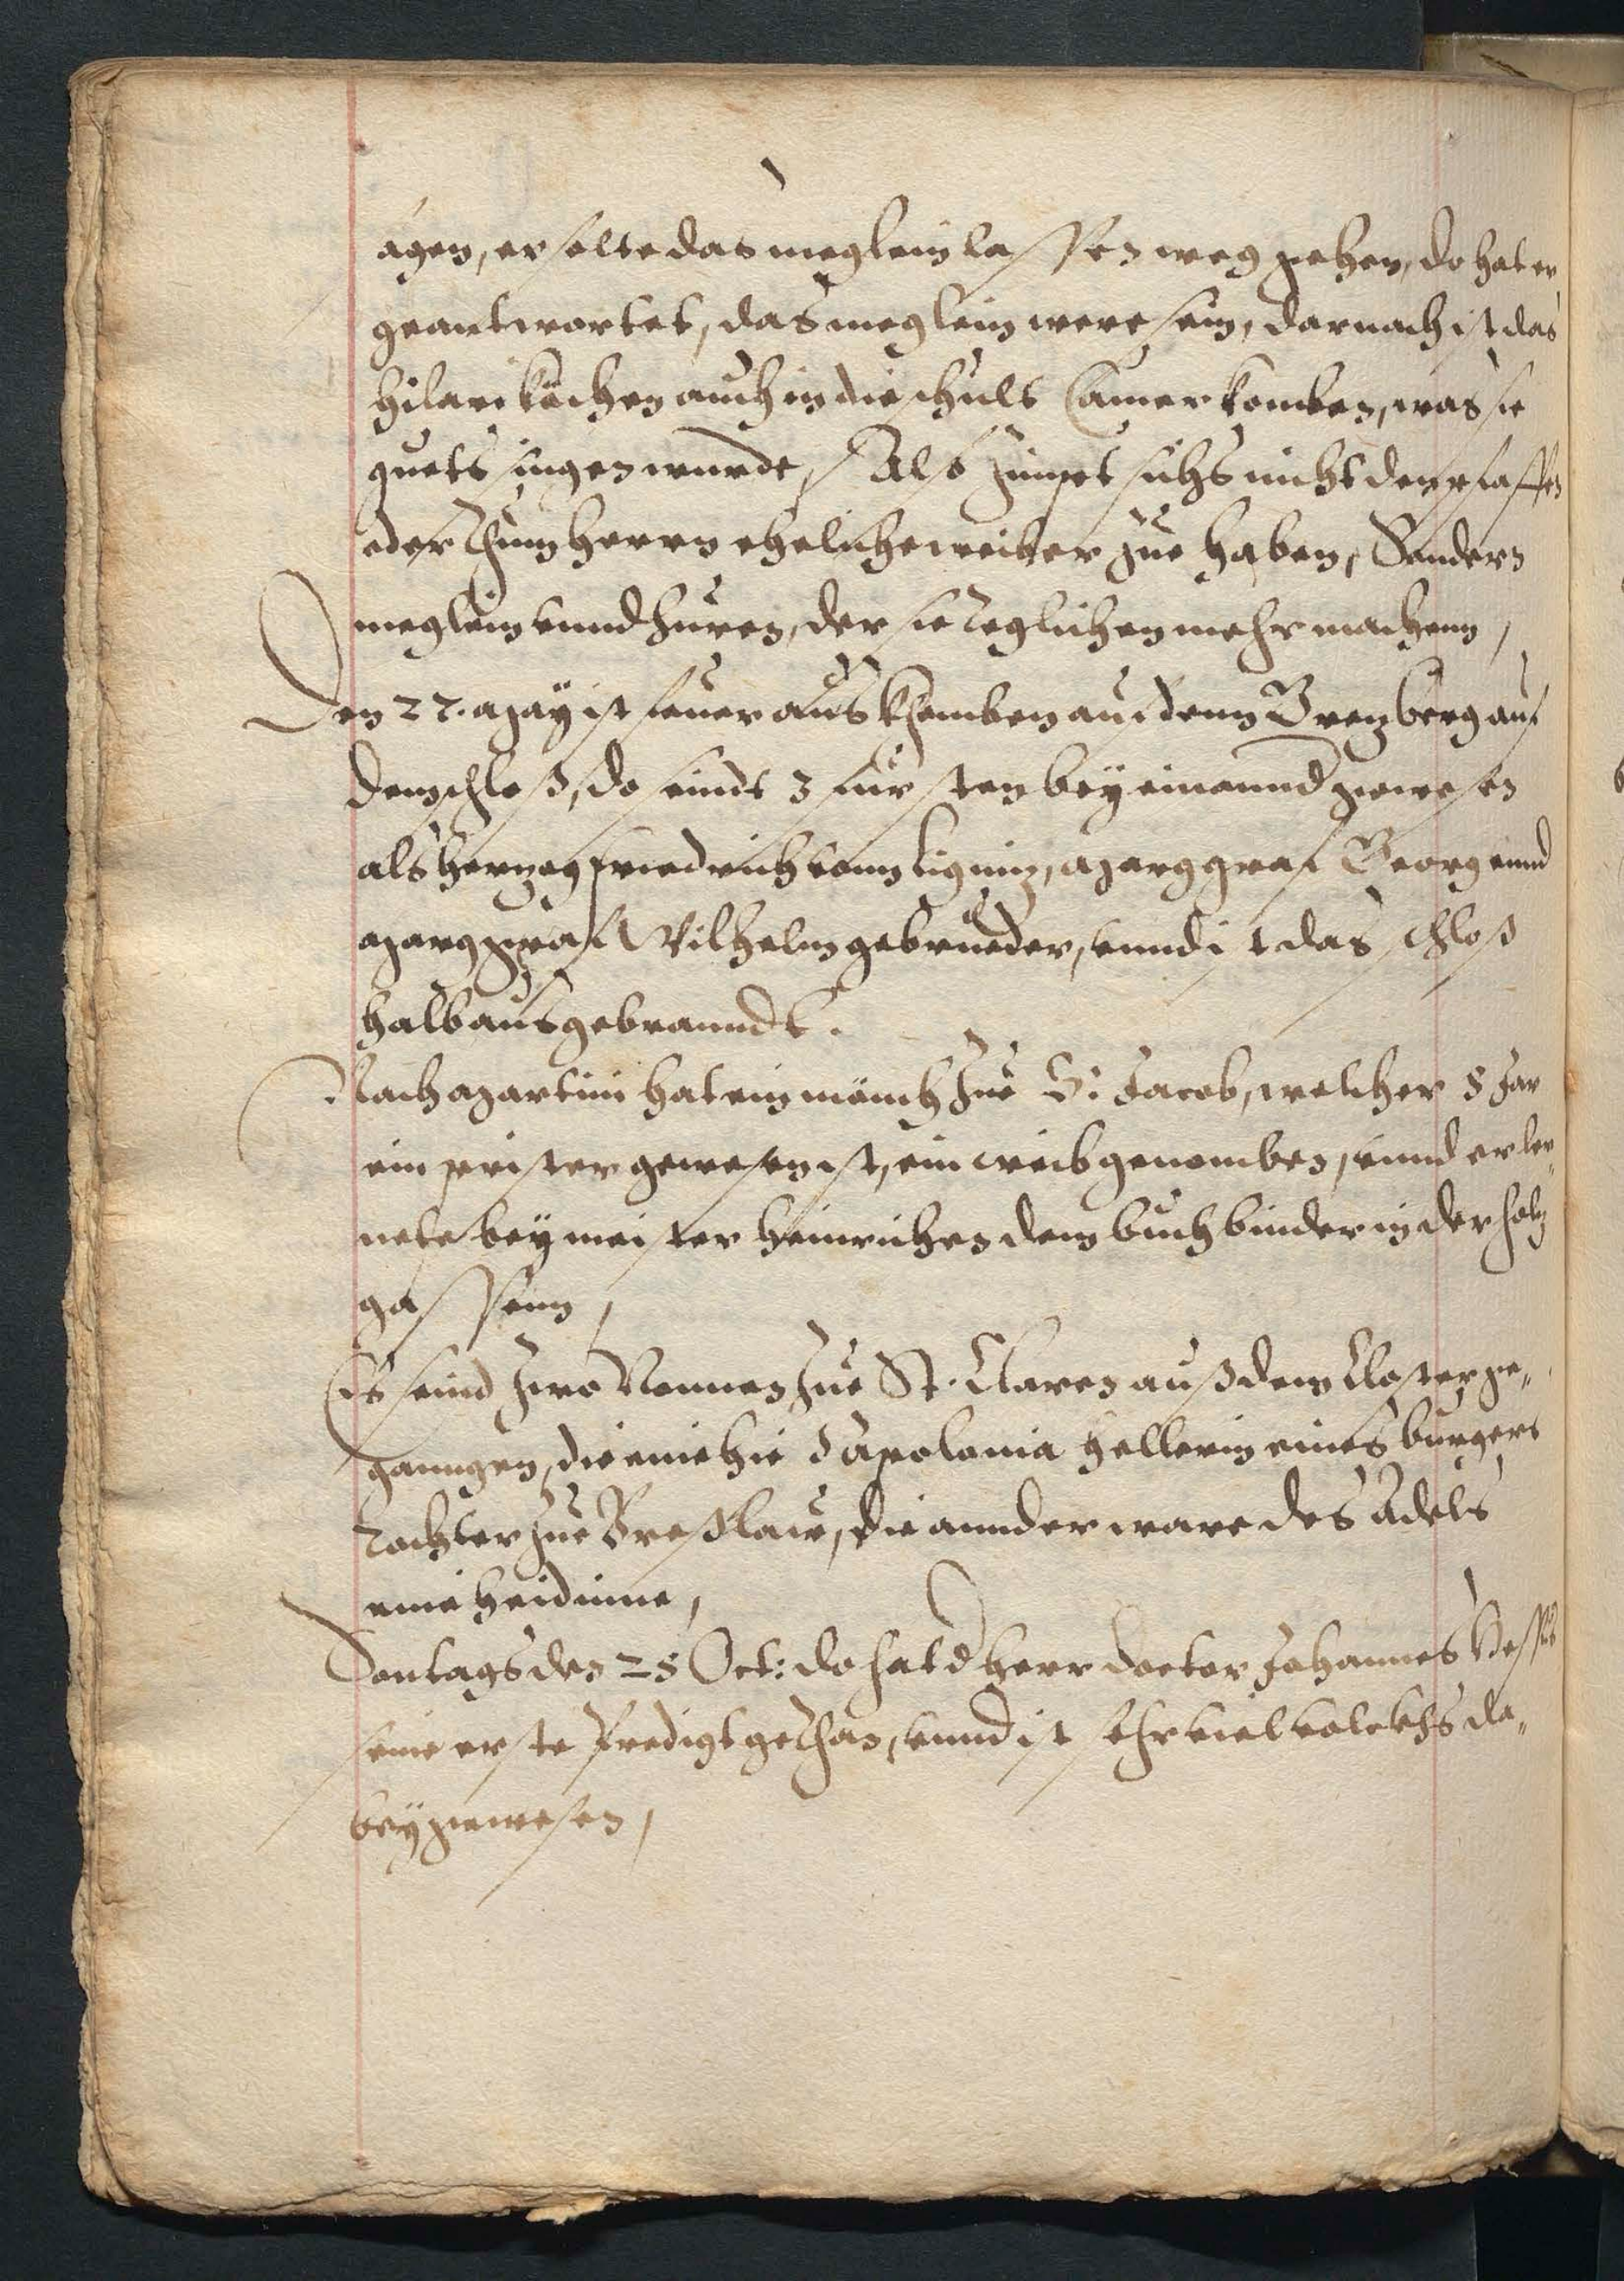 agen, er solte das meglein lassen weg gehen, do hat er
geantwortet, das meglein were sein, darnach ist das
hilari auch in die schuls Camer komben, was sie
guets singen wurde, Also zimpet sichs nicht den pfaffen
oder Thum herrn eheliche weiber zue haben, Sondern
meglein vnnd huren, der sie teglichen mehr machenn,
Den 22. May ist feuer aus khomben auf dem auf
dem schloß, do seindt 3 fursten bey einannd gewesen
als herzog friedrich vonn Ligniz, Marggraf Georg vnnd
Marggraf Wilhelm gebrueder, vnnd ist das schloß
halb ausgebranndt.
Nach Martini hat ein münch zue S: Jacob, welcher 8 Jar
ein prister gewesen ist, ein weib genomben, vnnd er ler„
nete bey meister heinrichen dem buchbinder in der holz
gassenn,
Es seind zwo Nonnen zue St. Claren auß dem Closter ge„
ganngen, die eine hie Apolonia hellerin eines burgers
Tochter zue Breßlaw, die annder ware des Adels
eine heidinne,
Sontags den 25 Oct: do hat d herr doctor Johannes Hess
seine erste Predigt gethan, vnnd ist sehr viel volckhs da„
bey gewesen,